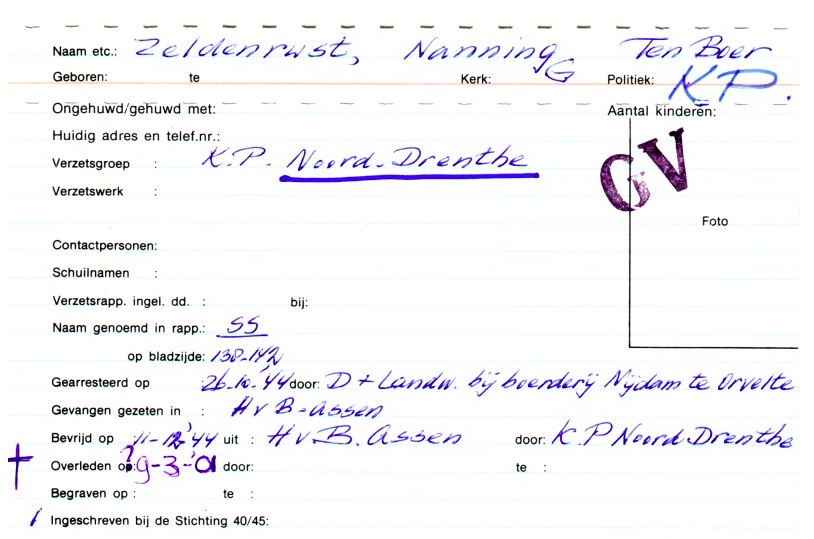 Naam etc.: Zeldenrust, Nanning G Ten Boer
Geboren: te Kerk: Politiek: K.P.
Ongehuwd/gehuwd met: Aantal kinderen:
Huidig adres en telef.nr.:
Verzetsgroep : K.P. Noord-Drenthe
GV
Verzetswerk :
Foto
Contactpersonen:
Schuilnamen :
Verzetsrapp. ingel. dd. : bij:
Naam genoemd in rapp.: SS
op bladzijde: 138-142
Gearresteerd op 26.10.'44 door: D + Landw. bij boerderij Nijdam te Orvelte
Gevangen gezeten in : HvB-Assen
Bevrijd op 11-12-'44 uit : HvB. Assen door: K.P Noord Drenthe
† Overleden op: ? 9-3-'01 door: te :
Begraven op : te :
Ingeschreven bij de Stichting 40/45: